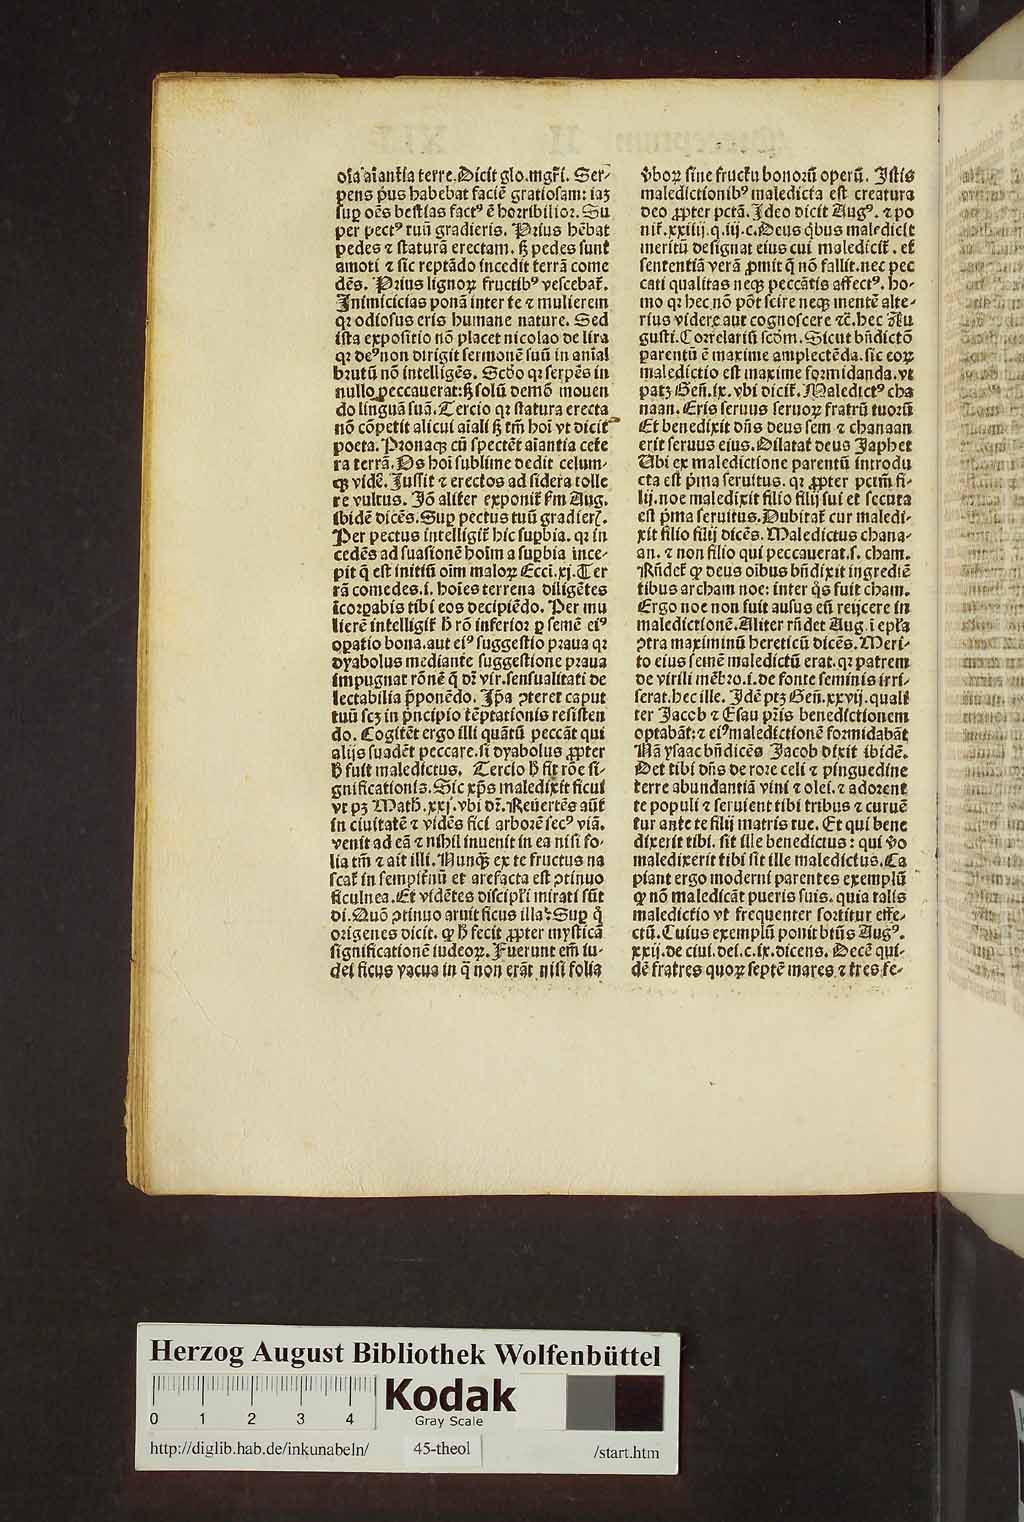 oı̄a aı̄antia terre. Dicit glo. mgr̄i. Ser-
pens p̄us habebat faciē gratiosam: iaꝫ
suꝑ oēs bestias factꝰ ē horribilior. Su
per pectꝰ tuū gradieris. Prius hēbat
pedes ⁊ staturā erectam. sꝫ pedes sunt
amoti ⁊ sic reptādo incedit terrā come
dēs. Prius lignoꝝ fructibꝰ vescebat̄.
Inimicicias ponā inter te ⁊ mulierem
qꝛ odiosus eris humane nature. Sed
ista expositio nō placet nicolao de lira
qꝛ deꝰ non dirigit sermonē suū in anīal
brutū nō intelligēs. Scd̄o qꝛ serpēs in
nullo peccauerat: sꝫ solū demō mouen
do linguā suā. Tercio qꝛ statura erecta
nō cōpetit alicui aīali sꝫ tm̄ hoī vt dicit
poeta. Pronaqꝫ cū spectēt aīantia cete
ra terrā. Os hoī sublime dedit celum-
qꝫ vidē. Jussit ⁊ erectos ad sidera tolle
re vultus. Jō aliter exponit̄ ẜm Aug.
ibidē dicēs. Suꝑ pectus tuū gradier̄.
Per pectus intelligit̄ hic suꝑbia. qꝛ in
cedēs ad suasionē hoīm a suꝑbia ince-
pit q̄ est initiū oīm maloꝝ Ecci. xj. Ter
rā comedes. i. hoīes terrena diligētes
īcorꝑabis tibi eos decipiēdo. Per mu
lierē intelligit̄ h̄ rō inferior ꝑ semē eiꝰ
oꝑatio bona. aut eiꝰ suggestio praua qꝛ
dyabolus mediante suggestione praua
impugnat rōnē q̄ dr̄ vir. sensualitati de
lectabilia p̄ponēdo. Ip̄a ꝯteret caput
tuū scꝫ in p̄ncipio tēptationis resisten
do. Cogitēt ergo illi quātū peccāt qui
alijs suadēt peccare. si dyabolus ꝓpter
h̄ fuit maledictus. Tercio h̄ fit rōe si-
gnificationis. Sic xp̄s maledixit ficui
vt pꝫ Math̄. xxj. vbi dr̄. Reuertēs aūt
in ciuitatē ⁊ vidēs fici arborē secꝰ viā.
venit ad eā ⁊ nihil inuenit in ea nisi fo-
lia tm̄ ⁊ ait illi. Nunqꝫ ex te fructus na
scat̄ in sempit̄nū et arefacta est ꝯtinuo
ficulnea. Et vidētes discipl̄i mirati sūt
di. Quō ꝯtinuo aruit ficus illa? Suꝑ q̄
origenes dicit. ꝙ h̄ fecit ꝓpter mysticā
significationē iudeoꝝ. Fuerunt em̄ iu-
dei ficus vacua in q̄ non erāt nisi folia
v̄boꝝ sine fructu bonorū operū. Istis
maledictionibꝰ maledicta est creatura
deo ꝓpter pctā. Ideo dicit Augꝰ. ⁊ po
nit̄. xxiiij. q. iij. c. Deus qͥbus maledicit
meritū designat eius cui maledicit̄. et
sententiā verā ꝓmit q̄ nō fallit. nec pec
cati qualitas neqꝫ peccātis affectꝰ. ho-
mo qꝛ hec nō pōt scire neqꝫ mentē alte-
rius videre aut cognoscere ⁊c̄. hec Au
gusti. Correlariū scd̄m. Sicut bn̄dictō
parentū ē maxime amplectēda. sic eoꝝ
maledictio est maxime formidanda. vt
patꝫ Gen̄. ix. vbi dicit̄. Maledictꝰ cha
naan. Eris seruus seruoꝝ fratrū tuorū
Et benedixit dn̄s deus sem ⁊ chanaan
erit seruus eius. Dilatat̄ deus Japhet
Ubi ex maledictione parentū introdu
cta est p̄ma seruitus. qꝛ ꝓpter pctm̄ fi-
lij. noe maledixit filio filij sui et secuta
est p̄ma seruitus. Dubitat̄ cur maledi-
xit filio filij dicēs. Maledictus chana-
an. ⁊ non filio qui peccauerat. s. cham.
Rn̄det̄ ꝙ deus oībus bn̄dixit ingrediē
tibus archam noe: inter q̄s fuit cham.
Ergo noe non fuit ausus eū reijcere in
maledictionē. Aliter rn̄det Aug. ī epl̄a
ꝯtra maximinū hereticū dicēs. Meri-
to eius semē maledictū erat. qꝛ patrem
de virili mēbro. i. de fonte seminis irri-
serat. hec ille. Idē ptꝫ Gen̄. xxvij. quali
ter Jacob ⁊ Esau pr̄is benedictionem
optabāt: ⁊ eiꝰ maledictionē formidabāt
Nā ysaac bn̄dicēs Jacob dixit ibidē.
Det tibi dn̄s de rore celi ⁊ pinguedine
terre abundantiā vini ⁊ olei. ⁊ adorent
te populi ⁊ seruient tibi tribus ⁊ curuē
tur ante te filij matris tue. Et qui bene
dixerit tibi. sit ille benedictus: qui v̄o
maledixerit tibi sit ille maledictus. Ca
piant ergo moderni parentes exemplū
ꝙ nō maledicāt pueris suis. quia talis
maledictio vt frequenter sortitur effe-
ctū. Cuius exemplū ponit btūs Augꝰ.
xxij. de ciui. dei. c. ix. dicens. Decē qui-
dē fratres quoꝝ septē mares ⁊ tres fe-
Herzog August Bibliothek Wolfenbüttel
0 1 2 3 4
Kodak
Gray Scale
http://diglib.hab.de/inkunabeln/ 45-theol /start.htm